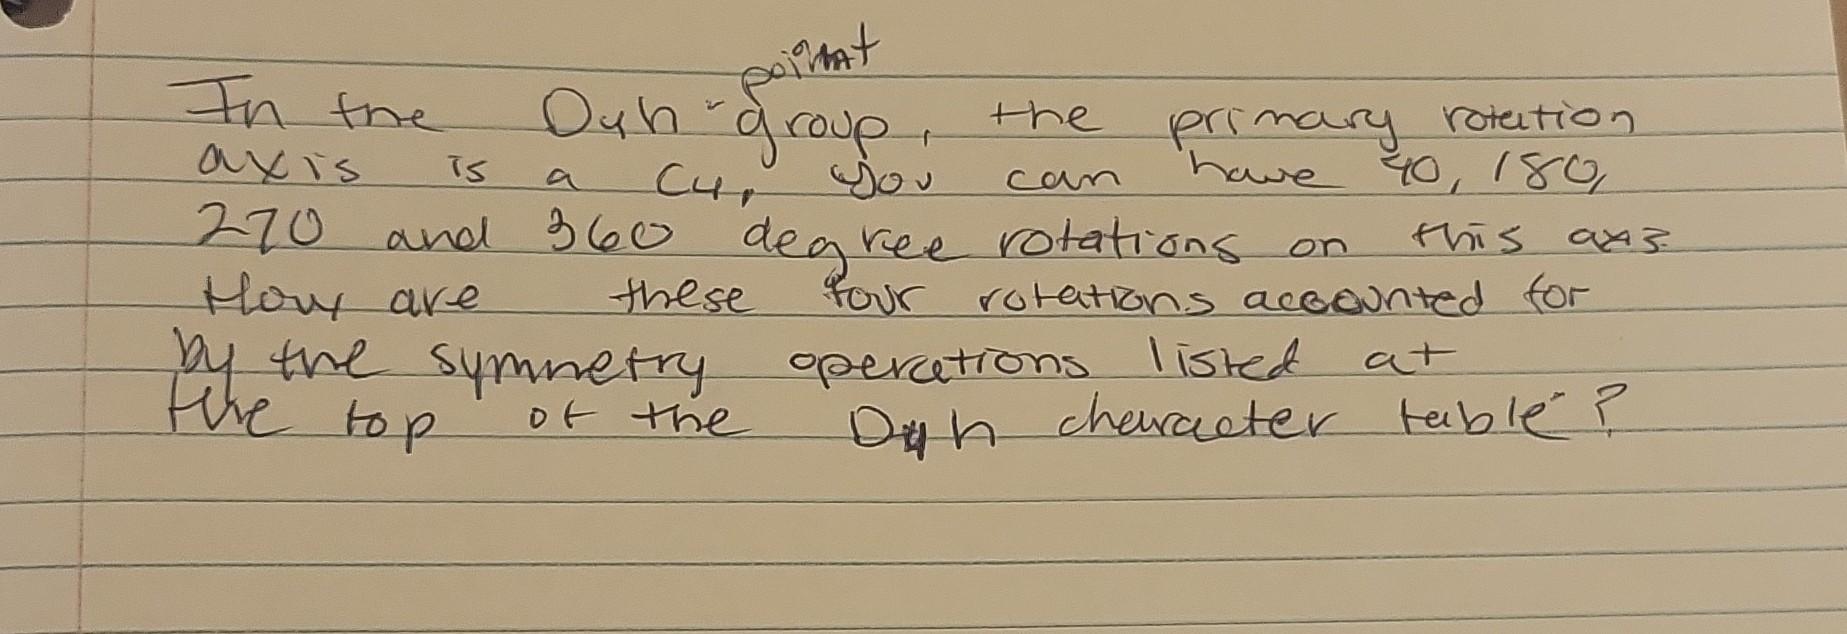 point
In the D4h group, the primary rotation
axis is a C4, You can have 90, 180,
270 and 360 degree rotations on this axis
How are these four rotations accounted for
by the symmetry operations listed at
the top of the D4h character table?